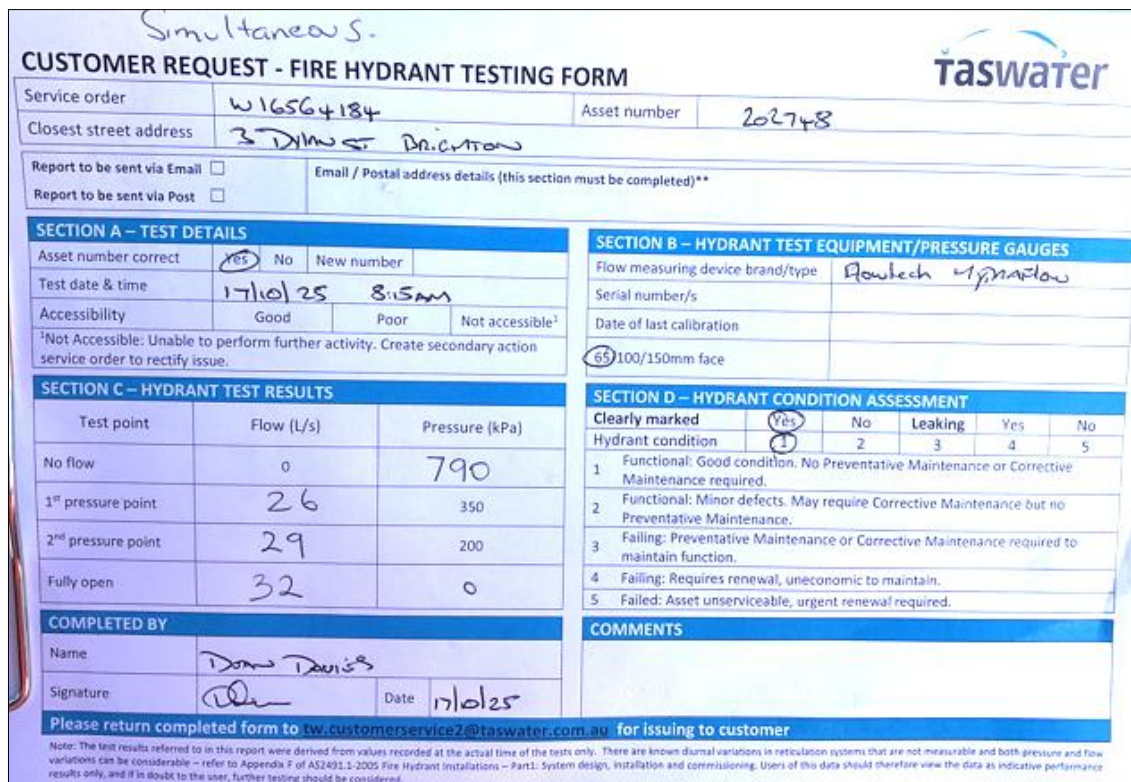 Simultaneous.
CUSTOMER REQUEST - FIRE HYDRANT TESTING FORM
Taswater
Service order W16564184 Asset number 202748
Closest street address 3 Dylan St Brighton
Report to be sent via Email ☐ Email / Postal address details (this section must be completed)**
Report to be sent via Post ☐
SECTION A – TEST DETAILS
Asset number correct Yes No New number
Test date & time 17/10/25 8:15am
Accessibility Good Poor Not accessible¹
¹Not Accessible: Unable to perform further activity. Create secondary action
service order to rectify issue.
SECTION B – HYDRANT TEST EQUIPMENT/PRESSURE GAUGES
Flow measuring device brand/type Flowtech
Serial number/s
Date of last calibration
65/100/150mm face
SECTION C – HYDRANT TEST RESULTS
Test point Flow (L/s) Pressure (kPa)
No flow 0 790
1st pressure point 26 350
2nd pressure point 29 200
Fully open 32 0
SECTION D – HYDRANT CONDITION ASSESSMENT
Clearly marked Yes No Leaking Yes No
Hydrant condition 1 2 3 4 5
1 Functional: Good condition. No Preventative Maintenance or Corrective
Maintenance required.
2 Functional: Minor defects. May require Corrective Maintenance but no
Preventative Maintenance.
3 Failing: Preventative Maintenance or Corrective Maintenance required to
maintain function.
4 Failing: Requires renewal, uneconomic to maintain.
5 Failed: Asset unserviceable, urgent renewal required.
COMPLETED BY
Name Davies
Signature Date 17/10/25
COMMENTS
Please return completed form to tw.customerservice2@taswater.com.au for issuing to customer
Note: The test results referred to in this report were derived from values recorded at the actual time of the tests only. There are known diurnal variations in reticulation systems that are not measurable and both pressure and flow
variations can be considerable – refer to Appendix F of AS2491.1-2005 Fire Hydrant Installations – Part1: System design, installation and commissioning. Users of this data should therefore view the data as indicative performance
results only, and if in doubt to the user, further testing should be considered.